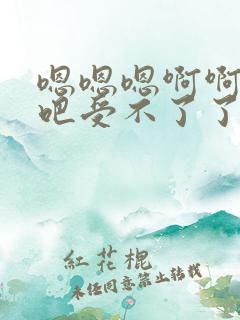 嗯嗯嗯啊啊
吧受不了了
紅花棍
未经同意禁止转载